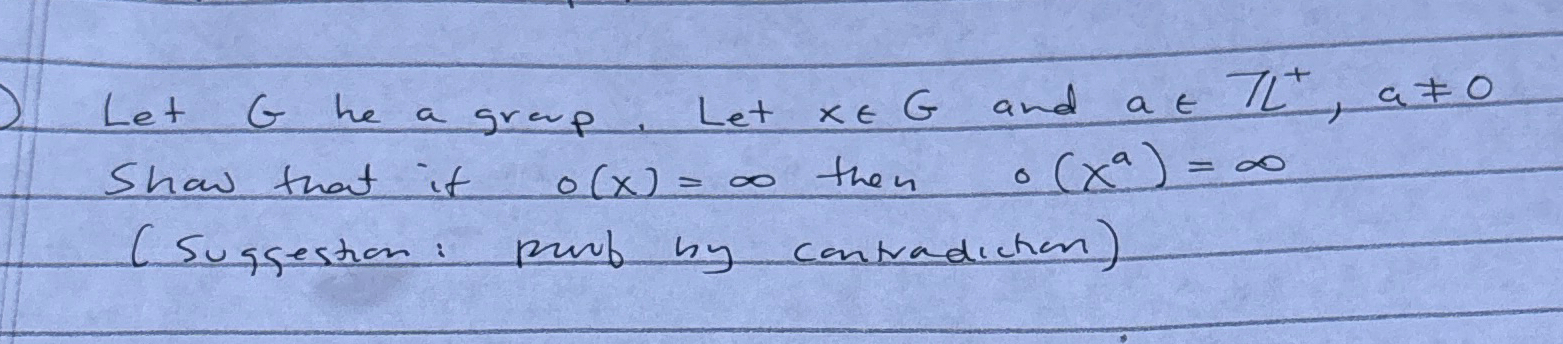 Let G be a group. Let x ∈ G and a ∈ ℤ⁺, a ≠ 0
Show that if o(x) = ∞ then o(xᵃ) = ∞
(Suggestion: proof by contradiction)